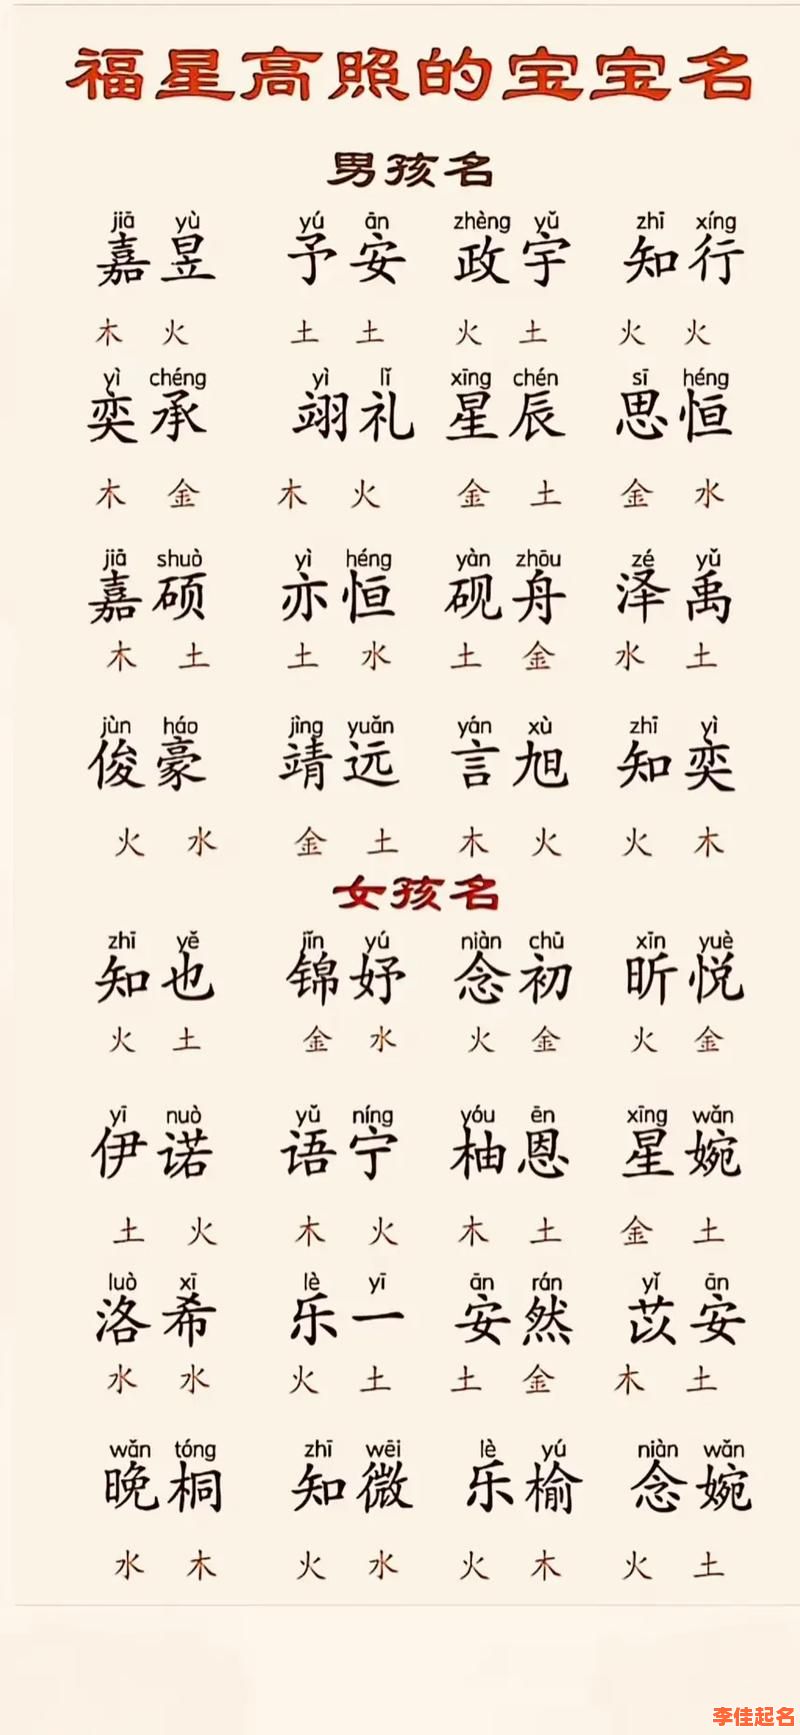 福星高照的宝宝名
男孩名
jiā yù yú ān zhèng yǔ zhī xíng
嘉昱 予安 政宇 知行
木 火 土 土 火 土 火 火
yì chéng yì lǐ xīng chén sī héng
奕承 翊礼 星辰 思恒
木 金 木 火 金 土 金 水
jiā shuò yì héng yàn zhōu zé yǔ
嘉硕 亦恒 砚舟 泽禹
木 土 土 水 土 金 水 土
jùn háo jìng yuǎn yán xù zhī yì
俊豪 靖远 言旭 知奕
火 水 金 土 木 火 火 木
女孩名
zhī yě jǐn yú niàn chū xīn yuè
知也 锦妤 念初 昕悦
火 土 金 水 火 金 火 金
yī nuò yǔ níng yóu ēn xīng wǎn
伊诺 语宁 柚恩 星婉
土 火 木 火 木 土 金 土
luò xī lè yī ān rán yǐ ān
洛希 乐一 安然 苡安
水 水 火 土 土 金 木 土
wǎn tóng zhī wēi lè yú niàn wǎn
晚桐 知微 乐榆 念婉
水 木 火 水 火 木 火 土
李佳起名